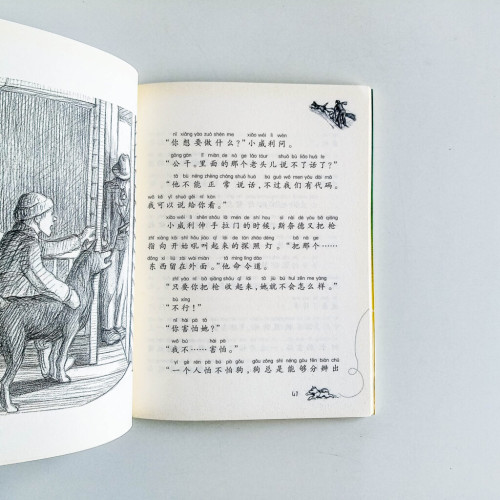 nǐ xiǎng yào zuò shén me xiǎo wēi lì wèn
“你想要做什么？”小威利问。
gōng gàn lǐ miàn de nà ge lǎo tóur shuō bù liǎo huà le
“公干。里面的那个老头儿说不了话了？”
tā bù néng zhèng cháng shuō huà bú guò wǒ men yǒu dài mǎ
“他不能正常说话，不过我们有代码。
wǒ kě yǐ shuō gěi nǐ kàn
我可以说给你看。”
xiǎo wēi lì shēn shǒu lā mén de shí hou sī nài dé yòu bǎ qiāng
小威利伸手拉门的时候，斯奈德又把枪
zhǐ xiàng kāi shǐ hǒu jiào qǐ lái de tàn zhào dēng bǎ nà ge
指向开始吼叫起来的探照灯。“把那个……
dōng xi liú zài wài miàn tā mìng lìng dào
东西留在外面。”他命令道。
zhǐ yào nǐ bǎ qiāng shōu qǐ lái tā jiù bú huì zěn me yàng
“只要你把枪收起来，她就不会怎么样。”
bù xíng
“不行！”
nǐ hài pà tā
“你害怕她？”
wǒ bù hài pà
“我不……害怕。”
yí gè rén pà bú pà gǒu gǒu zǒng shì néng gòu fēn biàn chū
“一个人怕不怕狗，狗总是能够分辨出
47